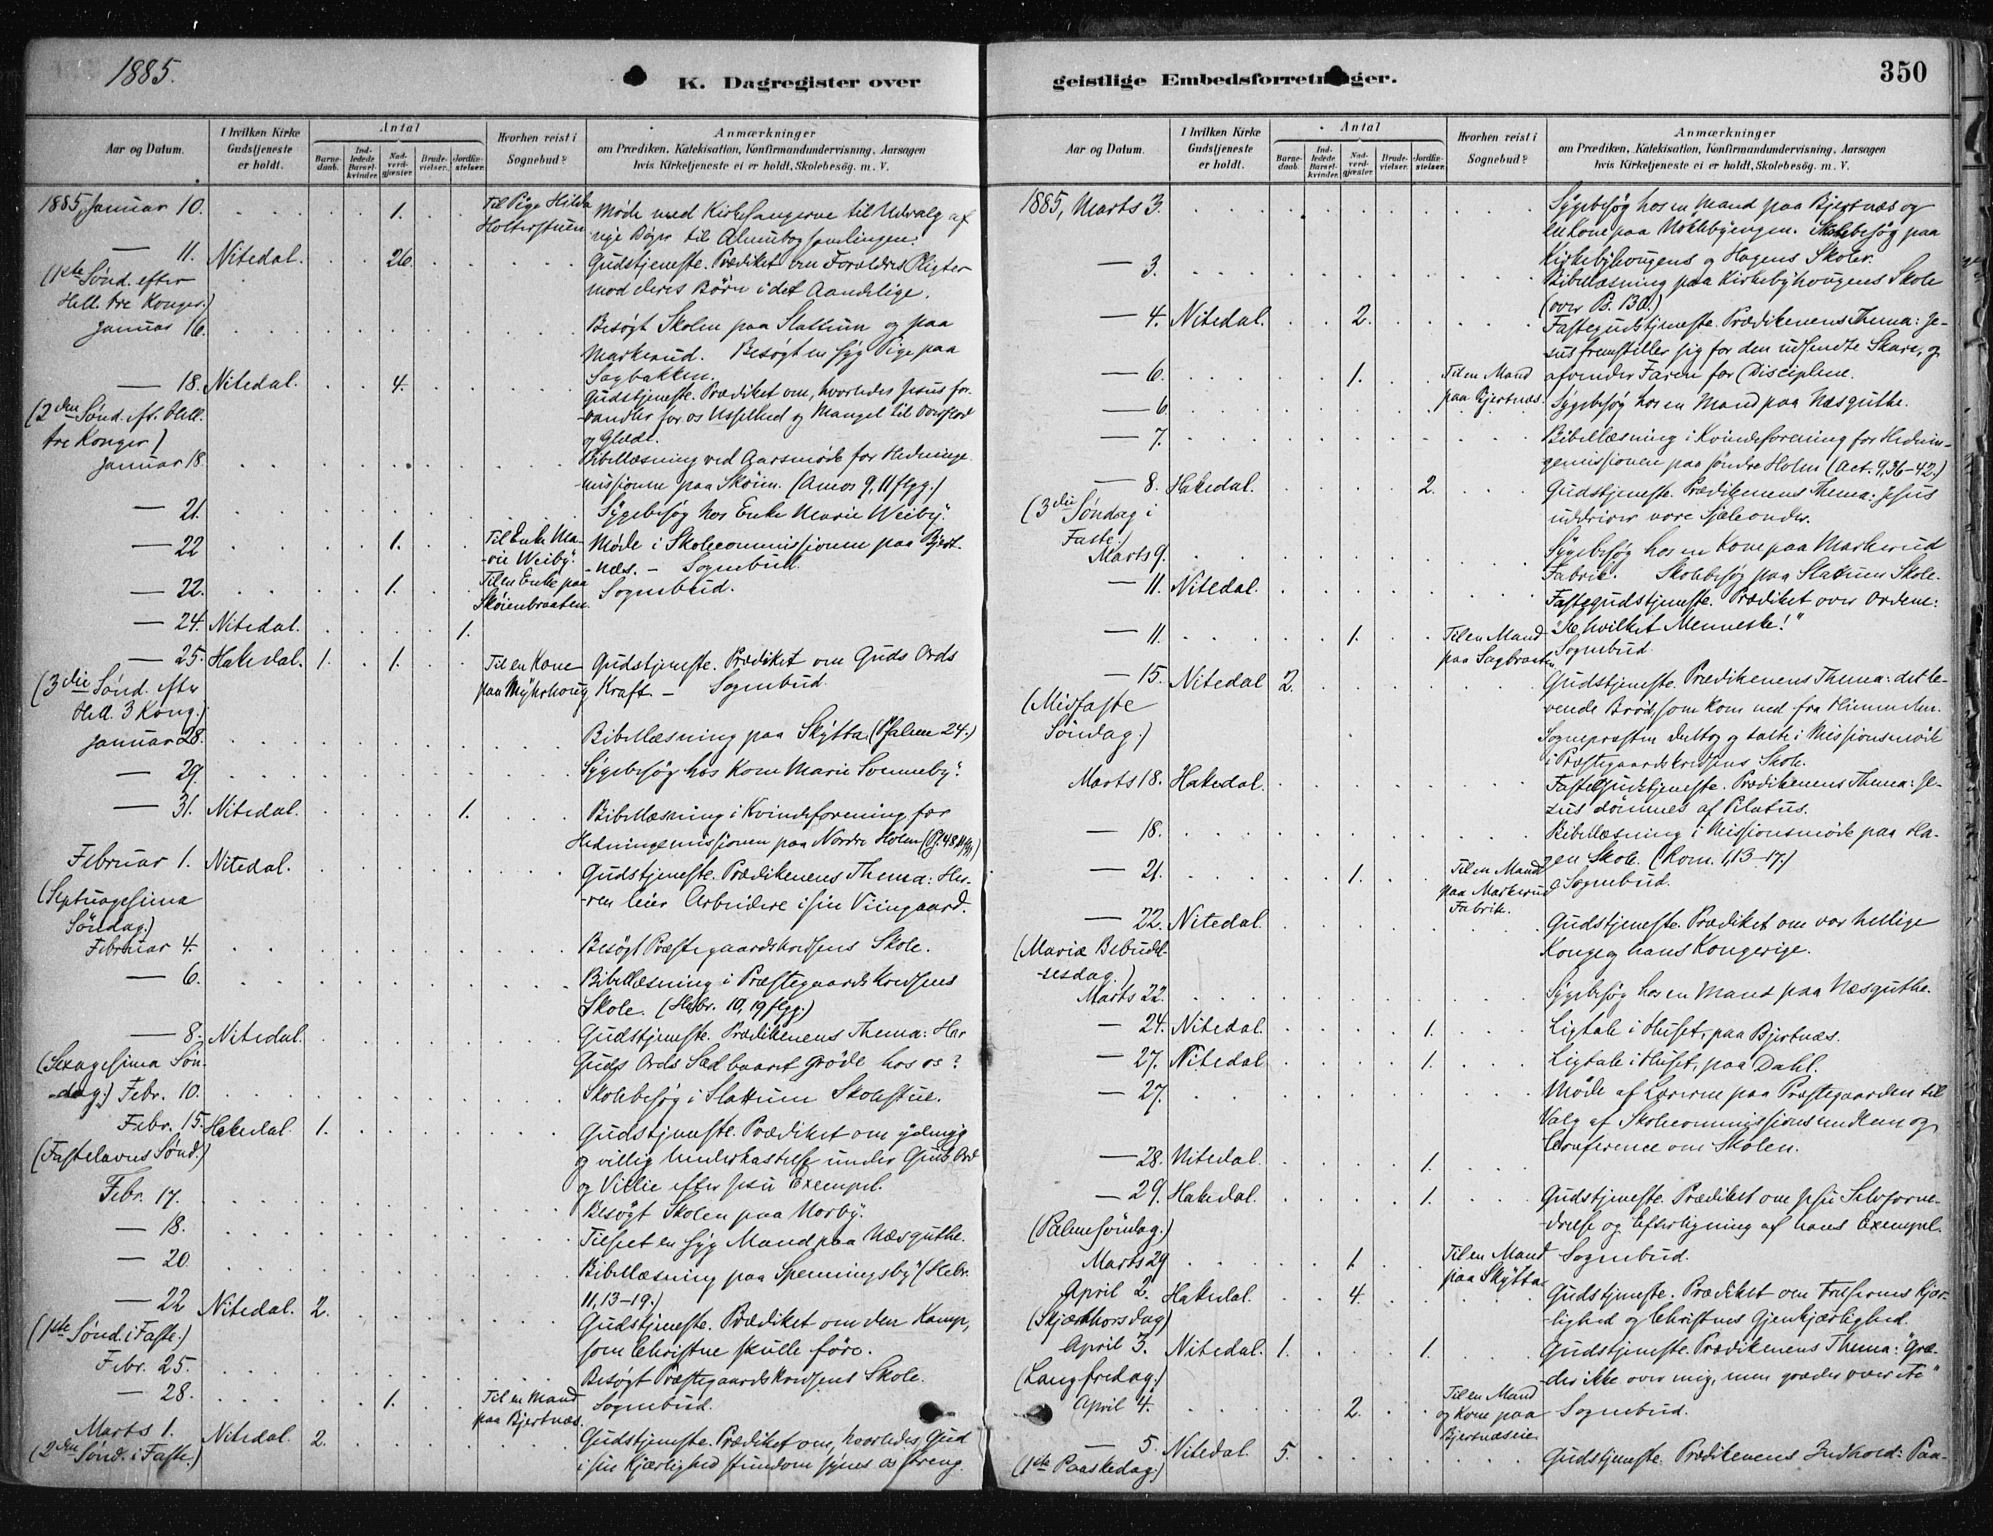 1885.
K. Dagregister over
Aar og Datum.
I hvilken Kirke Gudstjeneste er holdt.
Antal
Barnedaab.
Indledede Barselkvinder.
Nadverdgjæster.
Brudevielser.
Jordfæstelser.
Hvorhen reist i Sognebud?
Anmærkninger
om Prædiken, Katekisation, Konfirmandundervisning, Aarsagen
hvis Kirketjeneste ei er holdt, Skolebesøg. m. V.
1885, Januar 10. 1. Til Pige Hilda Møde med Kirkesangerne til Udvalg af
Holterstuen nye Bøger til Almuebogsamlingen.
— 11. Nitedal. 26. Gudstjeneste. Prædiket om Forældres Pligter
(1ste Sønd. efter mod deres Børn i det Aandelige.
Hell. tre Konger.)
Januar 16. Besøgt Skolen paa Slattum og paa
Markerud. Besøgt en syg Pige paa
Sagbakken.
— 18. Nitedal. 4. Gudstjeneste. Prædiket om, hvorledes Jesus for-
(2den Sønd. eft. Hell. vandler for os Usselhed og Mangel til Overflod
tre Konger) og Glæde.
Januar 18. Bibellæsning ved Aarsmøde for Hedninge-
missionen paa Skøien. (Amos 9, 11 flgg.)
— 21. Sygebesøg hos Enke Marie Weiby.
— 22 1. Til Enke Ma- Møde i Skolecommissionen paa Bjert-
rie Weiby. -næs. — Sognebud.
— 22. 1. Til en Enke paa Sognebud.
Skøienbraaten.
— 24. Nitedal. 1.
— 25. Hakedal. 1. 1. Til en Kone Gudstjeneste. Prædiket om Guds Ords
(3die Sønd. efter paa Myhrhoug Kraft. — Sognebud.
Hell. 3 Kong.)
Januar 28. Bibellæsning paa Skytta (Psalme 24.)
— 29. Sygebesøg hos Kone Marie Sonneby.
— 31. Nitedal. 1. Bibellæsning i Kvindeforening for
Hedningemissionen paa Nordre Holm
Februar 1. Nitedal. Gudstjeneste. Prædikenens Thema: Her-
(Septuagesima -ren leier Arbeidere i sin Viingaard.
Søndag.)
Februar 4. Besøgt Præstegaardskredsens Skole.
— 6. Bibellæsning i Præstegaardskredsens
Skole. (Hebr. 10, 19 flgg.)
— 8. Nitedal. Gudstjeneste. Prædikenens Thema: Har
(Sexagesima Søn- Guds Ords Sæd baaret Grøde hos os?
dag.) Febr. 10. Skolebesøg i Slattum Skolestue.
Febr. 15. Hakedal. 1. Gudstjeneste. Prædiket om ydmyg
(Fastelavns Sønd.) og villig Underkastelse under Guds Ord
og Villie efter Jesu Exempel.
Febr. 17. Besøgt Skolen paa Horby.
— 18. Tilseet en syg Mand paa Næsguthe.
— 20 Bibellæsning paa Spenningsby (Hebr.
11, 13–19.)
— 22 Nitedal. 2. Gudstjeneste. Prædiket om den Kamp,
(1ste Sønd. i Faste.) som Christne skulle føre.
Febr. 25. Besøgt Præstegaardskredsens Skole.
— 28. 1. Til en Mand Sognebud.
paa Bjertnæs.
Marts 1. Nitedal. 2. Gudstjeneste. Prædiket om, hvorledes Gud
(2den Sønd. i Faste.) i sin Kjærlighed stundom synes os streng.
geistlige Embedsforretninger.
350
Aar og Datum.
I hvilken Kirke Gudstjeneste er holdt.
Antal
Barnedaab.
Indledede Barselkvinder.
Nadverdgjæster.
Brudevielser.
Jordfæstelser.
Hvorhen reist i Sognebud?
Anmærkninger
om Prædiken, Katekisation, Konfirmandundervisning, Aarsagen
hvis Kirketjeneste ei er holdt, Skolebesøg. m. V.
1885, Marts 3. Sygebesøg hos en Mand paa Bjertnæs og
en Kone paa Noklebyengen. Skolebesøg paa
Kirkebyhougens og Hagens Skoler.
— 3. Bibellæsning paa Kirkebyhougens Skole
(over Ps. 130.)
— 4. Nitedal. 2. Fastegudstjeneste. Prædikenens Thema: Je-
sus fremstiller sig for den udsendte Skare, og
— 6. 1. Til en Mand afvender Faren for Disciplene.
paa Bjertnæs.
— 6. Sygebesøg hos en Mand paa Næsguthe.
— 7. Bibellæsning i Kvindeforening for Hednin-
gemissionen paa søndre Holm (Act. 9, 36–42.)
— 8. Hakedal. 2. Gudstjeneste. Prædikenens Thema: Jesus
(3die Søndag i uddriver vore Sjæleonder.
Faste.)
Marts 9. Sygebesøg hos en Kone paa Markerud
Fabrik. Skolebesøg paa Slattum Skole.
— 11. Nitedal. Fastegudstjeneste. Prædiket over Ordene:
"Se, hvilket Menneske!"
— 11. 1. Til en Mand Sognebud.
paa Sagbraaten
— 15. Nitedal 2. Gudstjeneste. Prædikenens Thema: det le-
(Midfaste vende Brød, som kom ned fra Himmelen.
Søndag.) Sognepræsten deltog og talte i Missionsmøde
i Præstegaardskredsens Skole.
Marts 18. Hakedal. Fastegudstjeneste. Prædikenens Thema: Je-
sus dømmes af Pilatus.
— 18. Bibellæsning i Missionsmøde paa Ha-
gen Skole. (Rom. 1, 13–17.)
— 21. 1. Til en Mand Sognebud.
paa Markerud
Fabrik.
— 22. Nitedal. Gudstjeneste. Prædiket om vor hellige
(Mariæ Bebudel- Konge og hans Kongerige.
-sesdag.)
Marts 22. Sygebesøg hos en Mand paa Næsguthe.
— 24. Nitedal. 1. Ligtale i Huset, paa Bjertnæs.
— 27. Nitedal 1. Ligtale i Huset, paa Dahl.
— 27. Møde af Lærerne paa Præstegaarden til
Valg af Skolecommissionsmedlem og
Conference om Skolen.
— 28. Nitedal. 1.
— 29. Hakedal. 1. Gudstjeneste. Prædiket om Jesu Selvforne-
(Palmesøndag.) drelse og Efterligning af hans Exempel.
Marts 29 1. Til en Mand Sognebud.
paa Skytta
April 2. Hakedal. 4. Gudstjeneste. Prædiket om Frelserens Kjær-
(Skjærthorsdag) lighed og Christnes Gjenkjærlighed.
April 3. Nitedal. 1. 1. Gudstjeneste. Prædikenens Thema: "Græ-
(Langfredag.) der ikke over mig, men græder over
April 4. 2. Til en Mand Sognebud.
og Kone paa
Bjertnæseie
— 5. Nitedal. 5. Gudstjeneste. Prædikenens Indhold: Paa-
(1ste Paaskedag.)